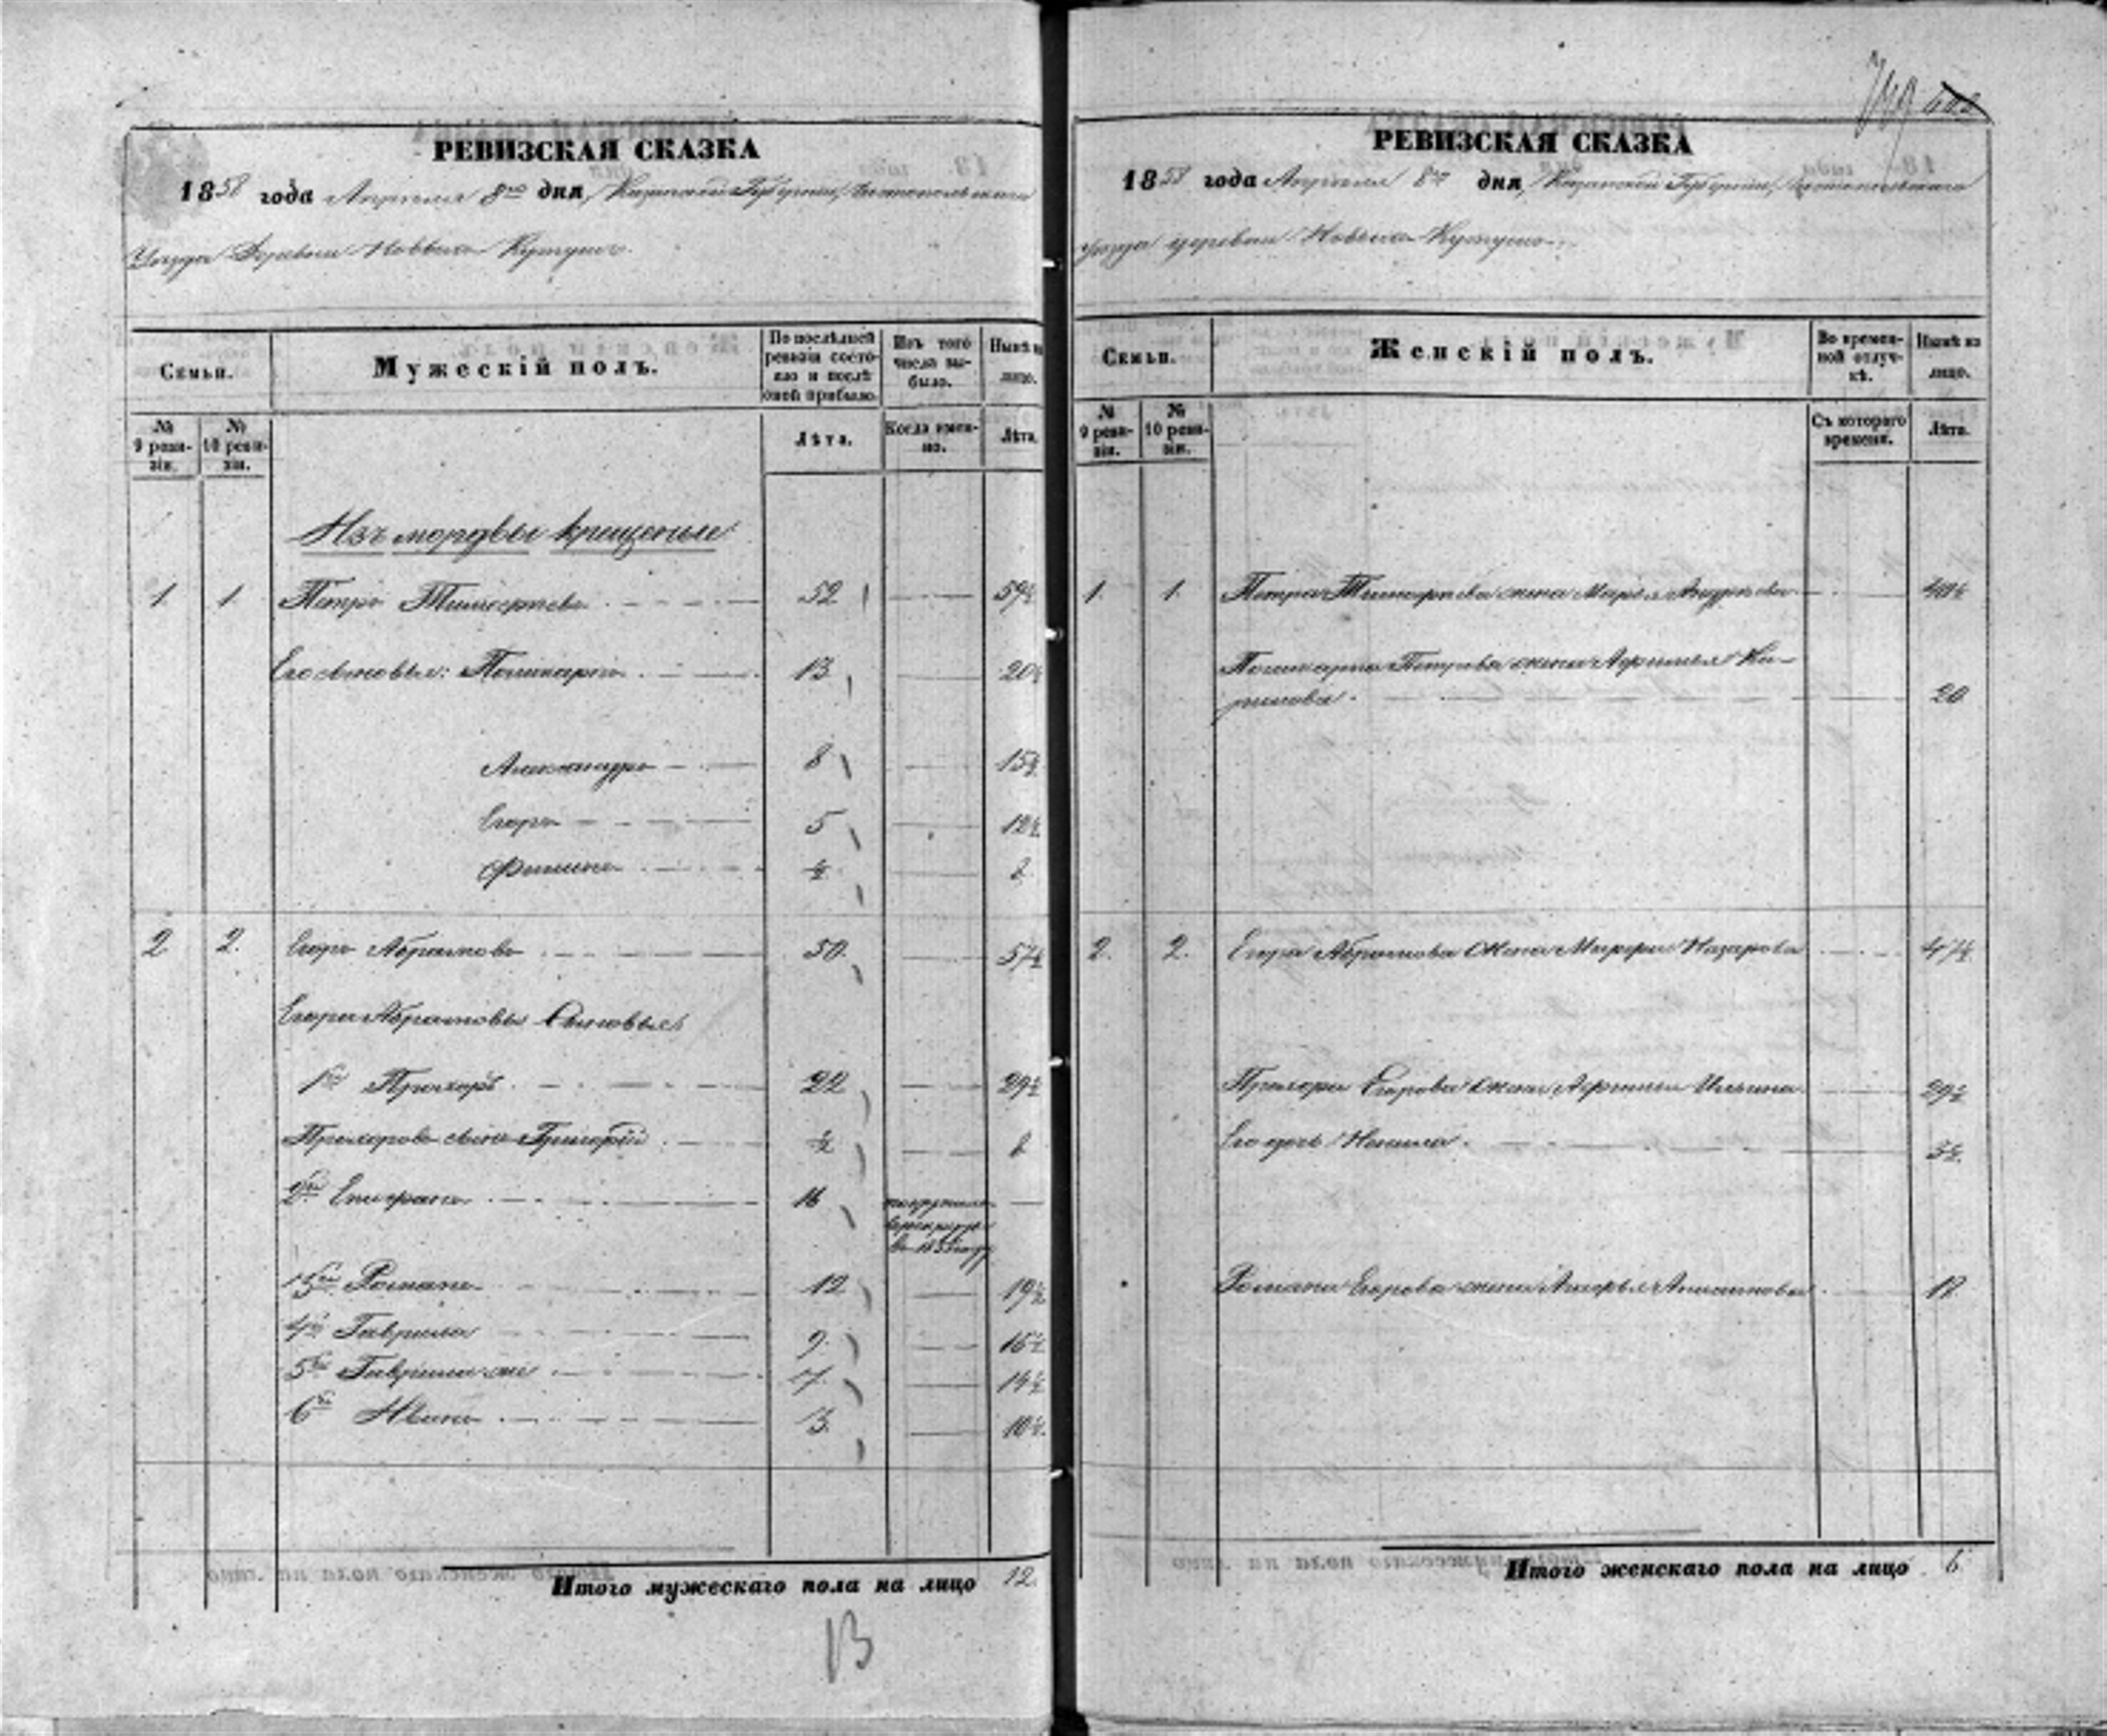 РЕВИЗСКАЯ СКАЗКА
1858 года Апреля 8го дня, Казанской Губернии, Чистопольскаго
Уезда Деревни Новыхъ
Семьи.
Мужескій полъ.
По послѣдней ревизіи состояло и послѣ оной прибыло.
Изъ того числа выбыло.
Нынѣ на лицо.
№ 9 ревизіи.
№ 10 ревизіи.
Лѣта.
Когда именно.
Лѣта.
Изъ мордвы крещеные
1 1 Петръ 52 59½
Его сыновья: Поликарпъ 13 20½
Александръ 8 15½
Егоръ 5 12½
Филипъ ½ 8
2 2. Егоръ Абрамовъ 50. 57½
Егора Абрамова Сыновья
1й Прохоръ 22 29½
Прохоровъ сынъ Григорій ½ 8
2й Епифанъ 16
въ рекруты
3й Романъ 12 19½
4й Гаврила 9. 16½
5й Гаврила же 7. 14½
6й Иванъ 3. 10½.
Итого мужескаго пола на лицо 12.
13
РЕВИЗСКАЯ СКАЗКА
1858 года Апреля 8го дня, Казанской Губернии, Чистопольскаго
Уезда деревни Новыхъ
Семьи.
Женскій полъ.
Во временной отлучкѣ.
Нынѣ на лицо.
№ 9 ревизіи.
№ 10 ревизіи.
Съ котораго времени.
Лѣта.
1. 1. Петра жена Марья Андреева
Поликарпа Петрова жена Афимья
20
2. 2. Егора Абрамова жена Марфа Назарова 47½
Прохора Егорова жена Афимья Ильина 29½
Его дочь 3½
Романа Егорова жена
Итого женскаго пола на лицо 6